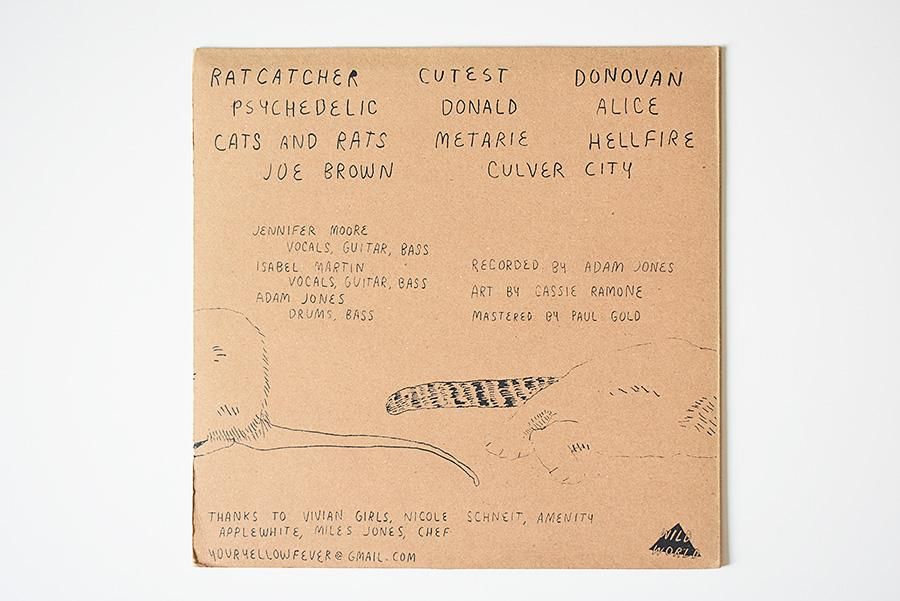 RATCATCHER CUTEST DONOVAN
PSYCHEDELIC DONALD ALICE
CATS AND RATS METARIE HELLFIRE
JOE BROWN CULVER CITY
JENNIFER MOORE
VOCALS, GUITAR, BASS
ISABEL MARTIN
VOCALS, GUITAR, BASS
ADAM JONES
DRUMS, BASS
RECORDED BY ADAM JONES
ART BY CASSIE RAMONE
MASTERED BY PAUL GOLD
THANKS TO VIVIAN GIRLS, NICOLE SCHNEIT, AMENITY
APPLEWHITE, MILES JONES, CHEF
YOURYELLOWFEVER@GMAIL.COM
WILD
WORLD